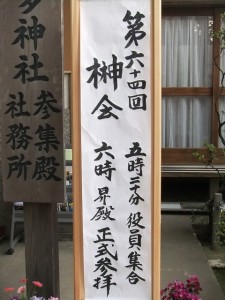 第六十四回
榊会
五時三十分 役員集合
六時 昇殿 正式参拝
神社 参集殿
社務所